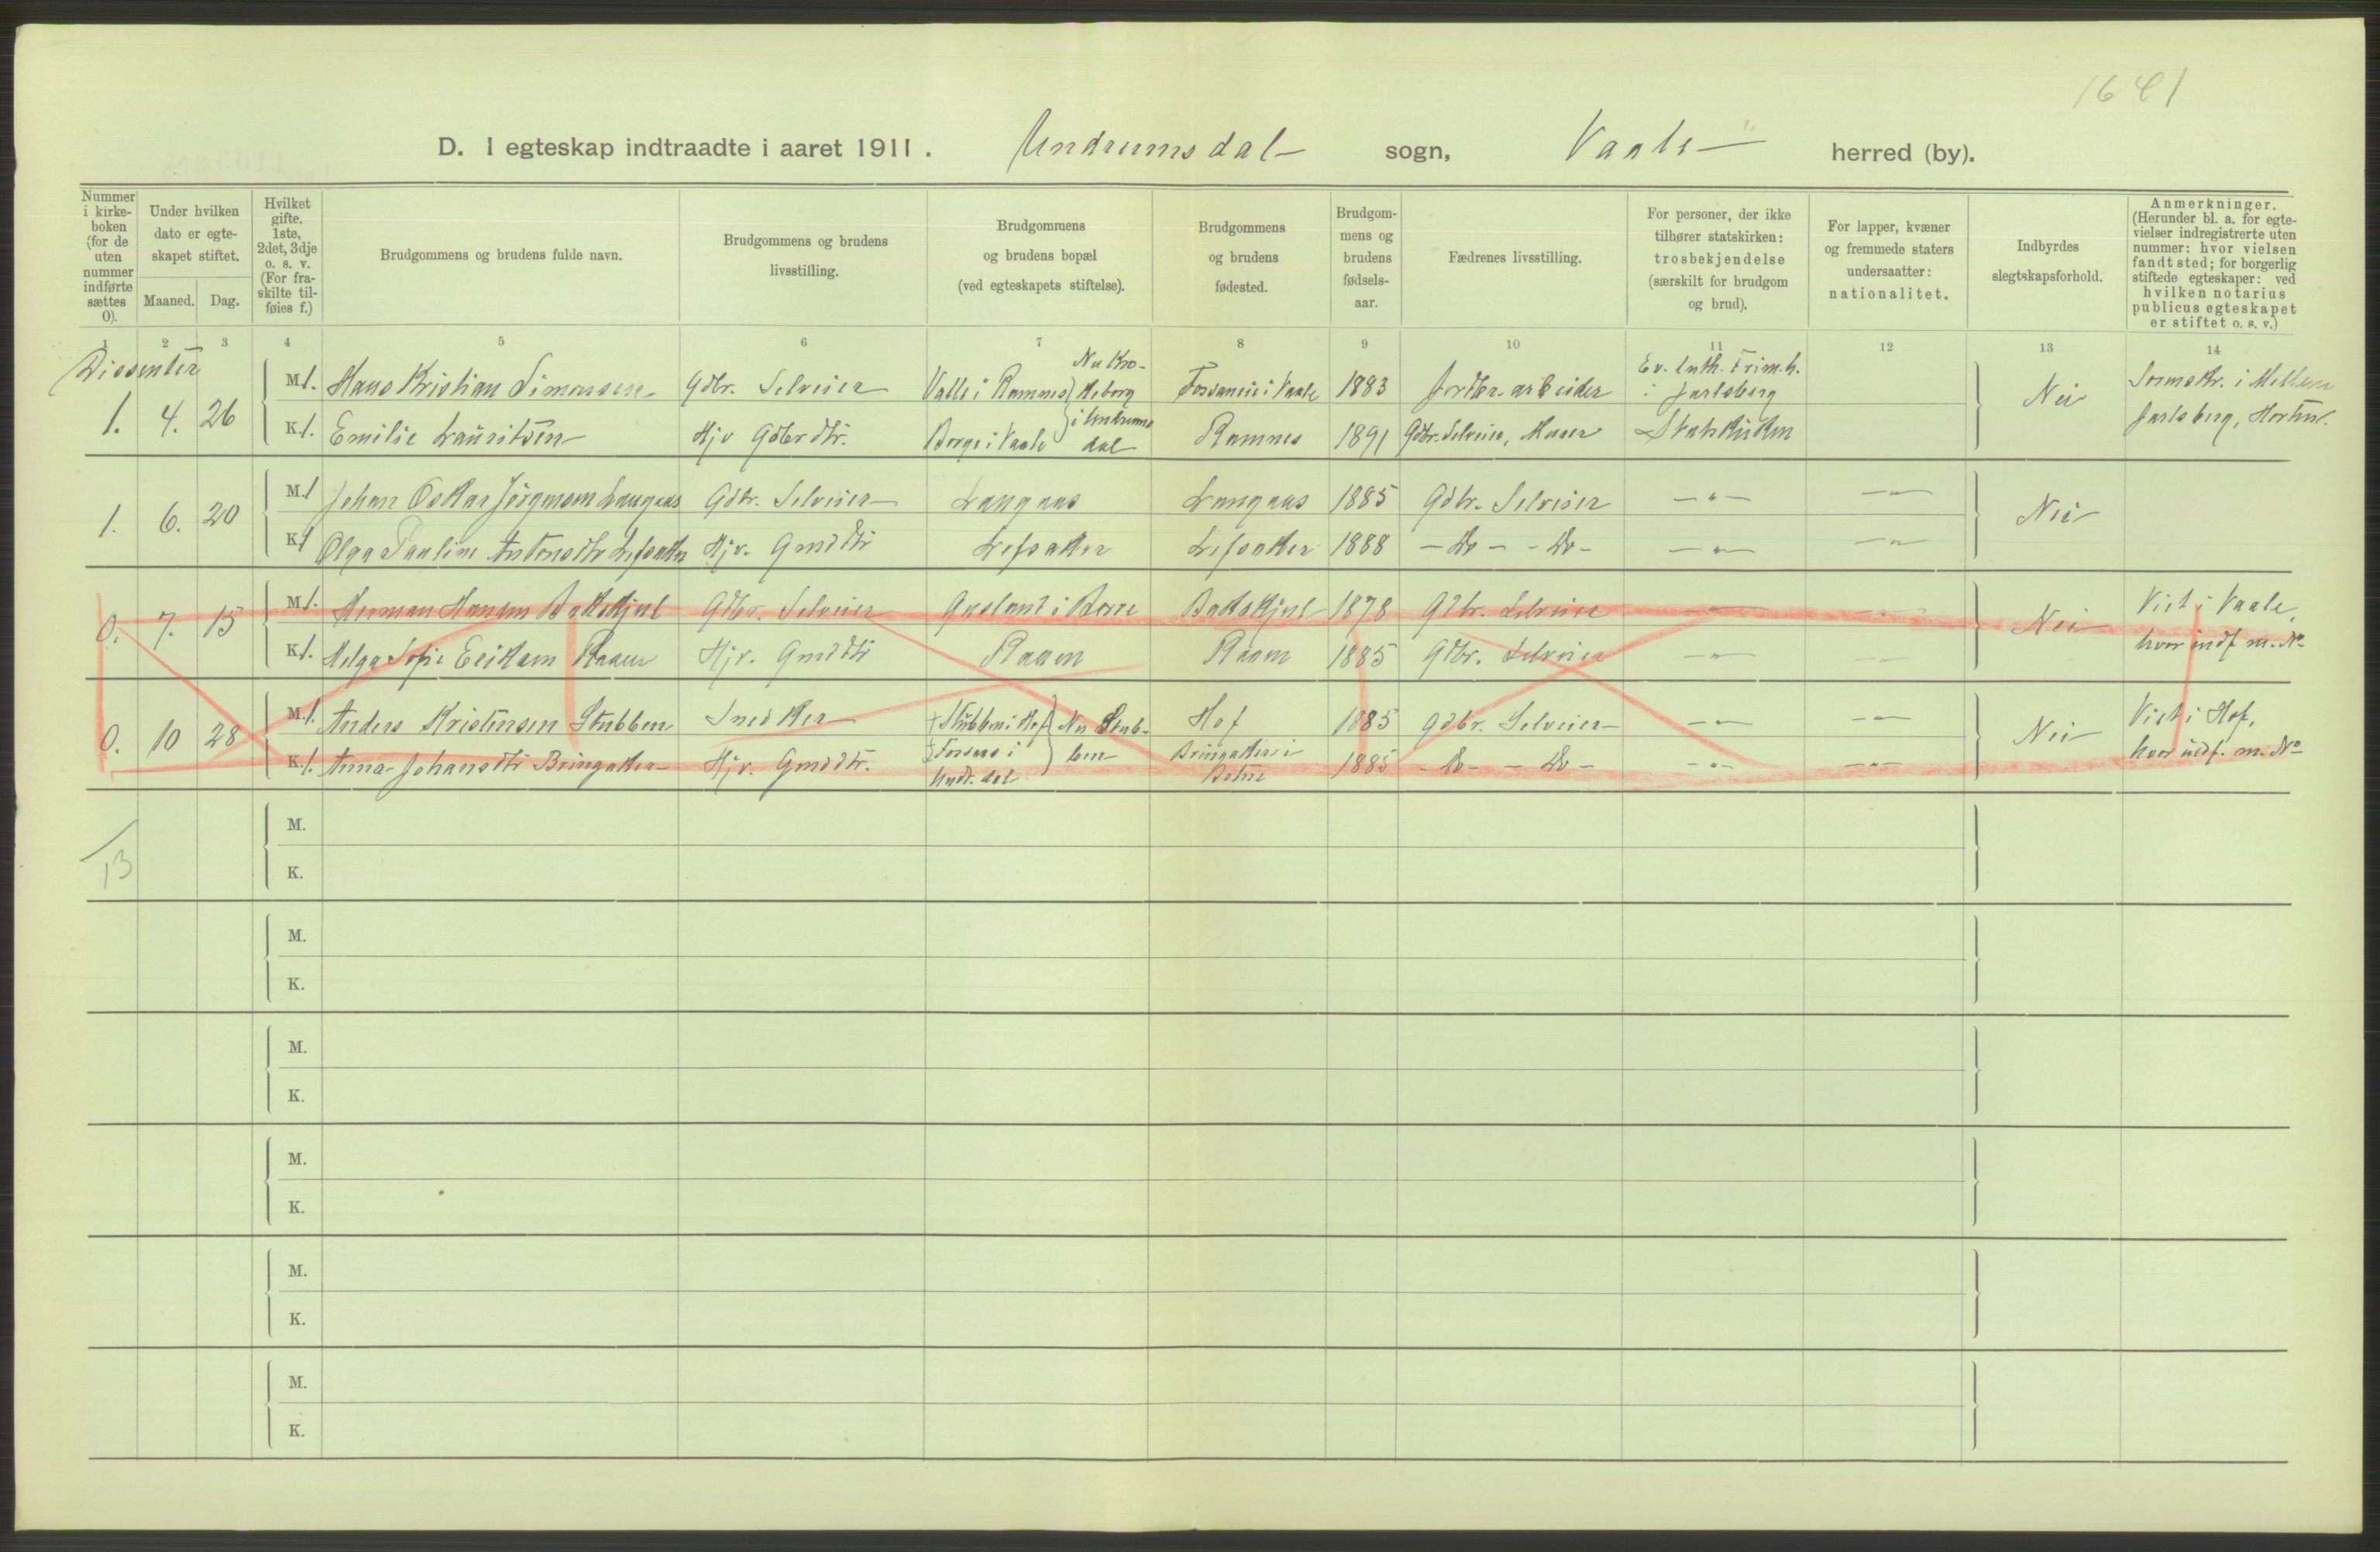 1641
D. I egteskap indtraadte i aaret 1911. Undrumsdal sogn, Vaale herred (by).
Nummer i kirke- boken (for de uten nummer indførte sættes 0).
Under hvilken dato er egte- skapet stiftet.
Maaned. Dag.
Hvilket gifte. 1ste, 2det, 3dje o. s. v. (For fra- skilte til- føies f.)
Brudgommens og brudens fulde navn.
Brudgommens og brudens livsstilling.
Brudgommens og brudens bopæl (ved egteskapets stiftelse).
Brudgommens og brudens fødested.
Brudgom- mens og brudens fødsels- aar.
Fædrenes livsstilling.
For personer, der ikke tilhører statskirken: trosbekjendelse (særskilt for brudgom og brud).
For lapper, kvæner og fremmede staters undersaatter: nationalitet.
Indbyrdes slegtskapsforhold.
Anmerkninger. (Herunder bl. a. for egte- vielser indregistrerte uten nummer: hvor vielsen fandt sted; for borgerlig stiftede egteskaper: ved hvilken notarius publicus egteskapet er stiftet o. s. v.)
1 2 3 4 5 6 7 8 9 10 11 12 13 14
Dissenter
1. 4. 26
M 1. Hans Kristian Simonsen Gdbr. Selveier Valle i Ramnes 1883 Jordbr. arbeider Ev. luth. Frim. i Jarlsberg
K. 1. Emilie Lauritsen Hjv Gdbrdtr. Borge i Vaale Ramnes 1891 Gdbr. Selveier, Statskirken
i Undrums dal
Nei
Jarlsberg, Horten.
1. 6. 20
M. 1 Johan Oskar Jörgensen Langaas Gdbr. Selveier Langaas Langaas 1885 Gdbr. Selveier — " — — " —
K. 1 Olga Pauline Antonsdtr Lefsaker Hjv. Gmddtr Lefsaker Lefsaker 1888 — Do — - Do - — " — — " —
Nei
0. 7. 15
M 1. Herman Hansen Bakskjul Gdbr. Selveier i Borre Bakskjul 1878 Gdbr. Selveier — " — — " —
K 1. Helga Sofie Eriksen Raaen Hjv. Gmddtr Raaen Raaen 1885 Gdbr. Selveier — " — — " —
Nei
Viet i Vaale,
hvor indf m. No
0. 10 28
M. 1. Anders Kristensen Stubben Snedker Stubben i Hof Nu Stub- Hof 1885 Gdbr. Selveier — " — — " —
K. 1. Anna Johansdtr Bringaker Hjv. Gmddtr. i Undr. dal ben Bringaker i Botne 1885 - Do - - Do - — " — — " —
Nei
Viet i Hof,
hvor indf. m. No
13
M.
K.
M.
K.
M.
K.
M.
K.
M.
K.
M.
K.